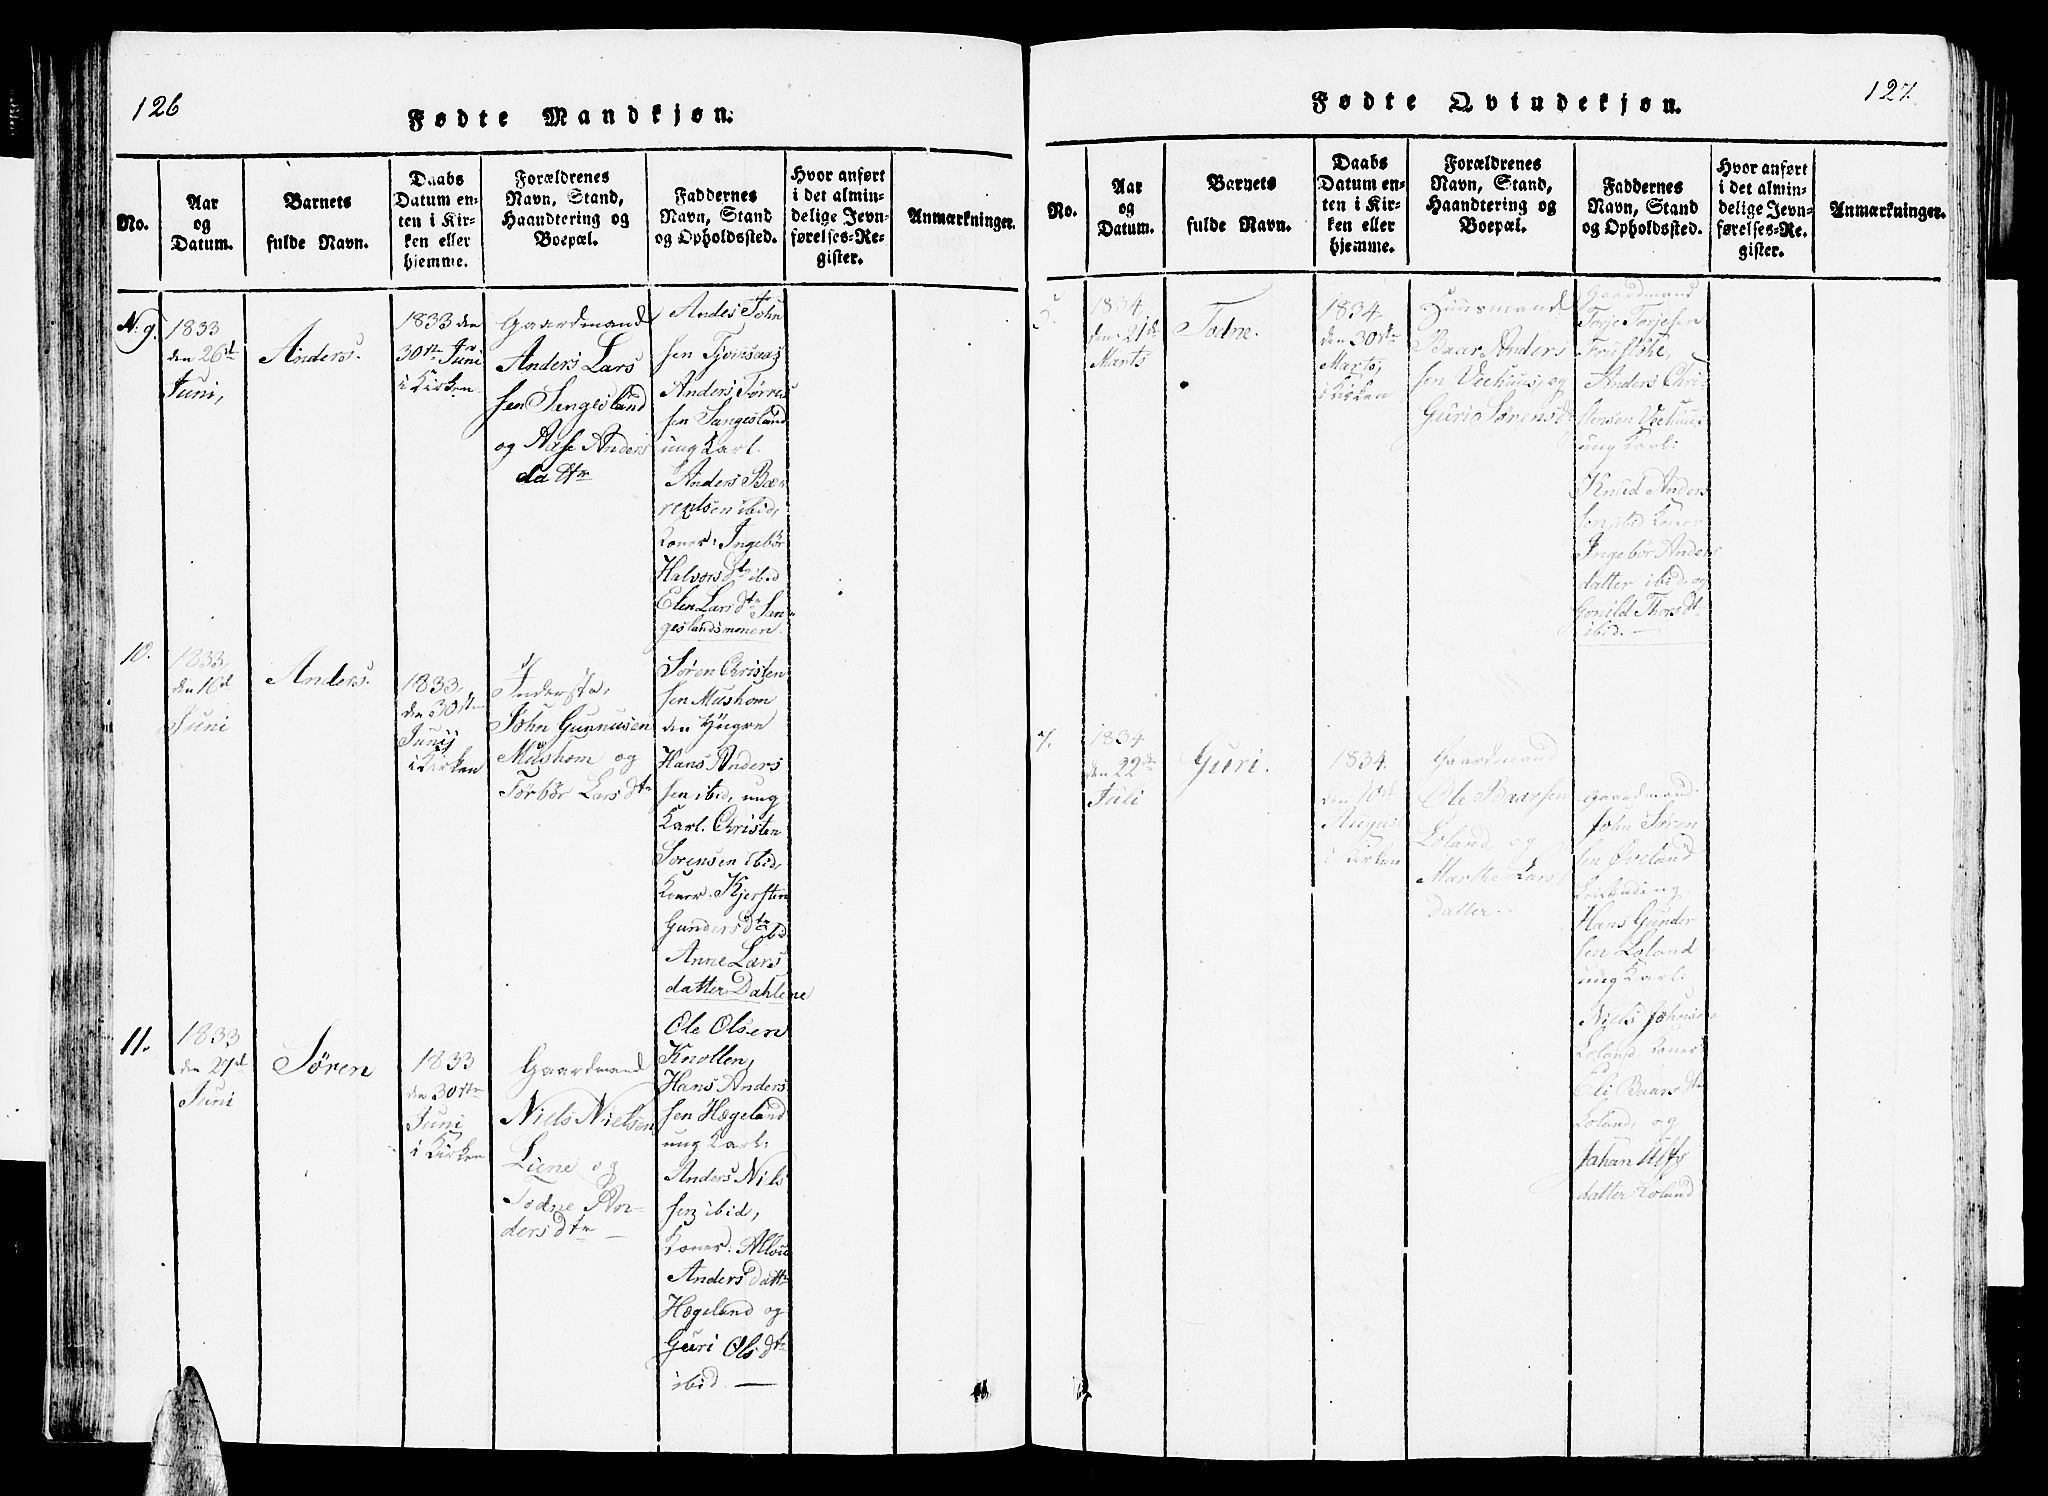 126
Fødte Mandkjøn.
No.
Aar
og
Datum.
Barnets
fulde Navn.
Daabs
Datum en-
ten i Kir-
ken eller
hjemme.
Forældrenes
Navn, Stand,
Haandtering og
Boepæl.
Faddernes
Navn, Stand
og Opholdssted.
Hvor anført
i det almin-
delige Jevn-
førelses-Re-
gister.
Anmærkninger.
N: 9.
1833
den 26d
Juni,
Anders.
1833 den
30te Juni
i Kirken
Gaardmand
Anders Lars
sen Sengesland
og Aase Anders
dattr
Andes John
sen Tjonsaas
Anders Tørres
sen Sangesland
ung Karl.
Anders Bær
rentsen ibid,
Koner: Ingebør
Halvors dtr ibid
Elen Lars dtr Sen-
geslandsmonen.
10.
1833
den 16d
Juni
Anders.
1833.
den 30te
Junij
i Kirken
Inderste,
John Gunnusen
Mushom og
Torbør Lars dtr
Søren Christen
sen Mushom
den Yngre
Hans Anders
sen ibid, ung
Karl. Christen
Sørensen ibid,
Koner. Kjersten
Gunders dtr ibid
Anne Lars
datter Dahlene
11.
1833
den 27d
Juni
Søren
1833
den 30te
Juni
i Kirken
Gaardmand
Niels Nielsen
Liene og
Todne An-
dersdtr —
Ole Olsen
Knollen,
Hans Anders
sen Hægeland
ung Karl:
Anders Nils
sen ibid,
Koner.
Anders dattr
Hægeland og
Guri Ols dtr
ibid. —
127.
Fødte Qvindekjøn.
No.
Aar
og
Datum.
Barnets
fulde Navn.
Daabs
Datum en-
ten i Kir-
ken eller
hjemme.
Forældrenes
Navn, Stand,
Haandtering og
Boepæl.
Faddernes
Navn, Stand
og Opholdssted.
Hvor anført
i det almin-
delige Jevn-
førelses-Re-
gister.
Anmærkninger.
5.
1834
den 21de
Marts
Todne.
1834
den 30te
Marts,
i Kirken
Huusmand
Baar Anders
sen Veehuus, og
Guri Sørensdr
Gaardmand
Torje Torjesen
Anders Chri-
stensen Veehuus
ung Karl:
Knud Anders
sen, ibid Koner
Ingebør Anders
datter ibid, og
Gonild Thors dt
ibid. —
7.
1834
den 22de
Juli
Guri.
1834.
den 10de
August
i Kirken
Gaardmand
Ole Baarsen
Loland, og
Marthe Lars
datter.
Gaardmand
John Søren
sen Øveland
Hans Gunder
sen Loland
ung Karl:
Niels Johnsen
Loland, Koner
Eli Baars dtr
Loland, og
Johan
datter Loland